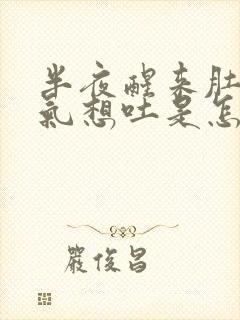 半夜醒来肚
氣想吐是怎
嚴俊昌